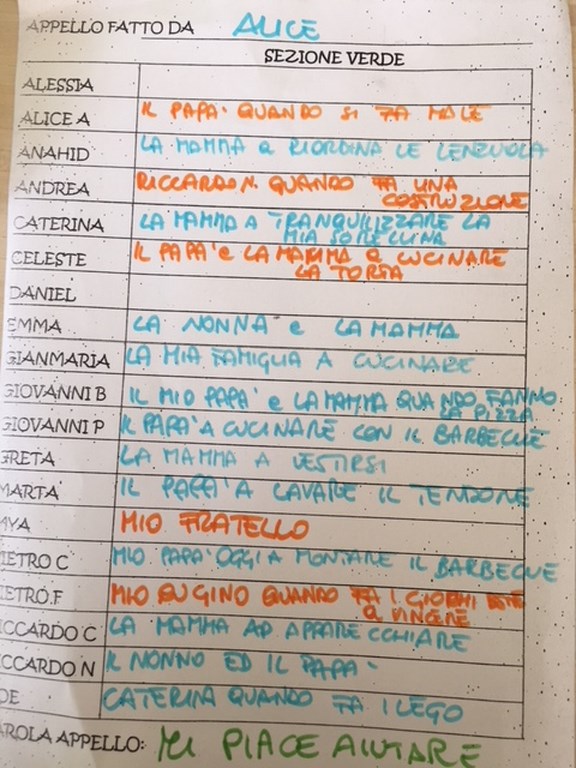 APPELLO FATTO DA ALICE
SEZIONE VERDE
ALESSIA
ALICE A IL PAPA' QUANDO SI FA MALE
ANAHID LA MAMMA A RIORDINA LE LENZUOLA
ANDREA RICCARDO N. QUANDO FA UNA
COSTRUZIONE
CATERINA LA MAMMA A TRANQUILIZZARE LA
MIA SORELLINA
CELESTE IL PAPA' e LA MAMMA A CUCINARE
LA TORTA
DANIEL
EMMA LA NONNA e LA MAMMA
GIANMARIA LA MIA FAMIGLIA A CUCINARE
GIOVANNI B IL MIO PAPA' e LA MAMMA QUANDO FANNO
LA PIZZA
GIOVANNI P IL PAPA' A CUCINARE CON IL BARBECUE
GRETA LA MAMMA A VESTIRSI
MARTA IL PAPA' A LAVARE IL TENDONE
AYA MIO FRATELLO
IETRO C MIO PAPA' OGGI A MONTARE IL BARBECUE
IETRO F MIO CUGINO QUANDO FA I GIORMI
A VINCERE
ICCARDO C LA MAMMA AD APPARECCHIARE
ICCARDO N IL NONNO ED IL PAPA'
DE CATERINA QUANDO FA I LEGO
AROLA APPELLO: MI PIACE AIUTARE